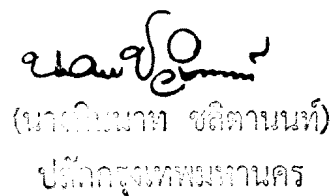 (นางนินนาท ชลิตานนท์)
ปลัดกรุงเทพมหานคร